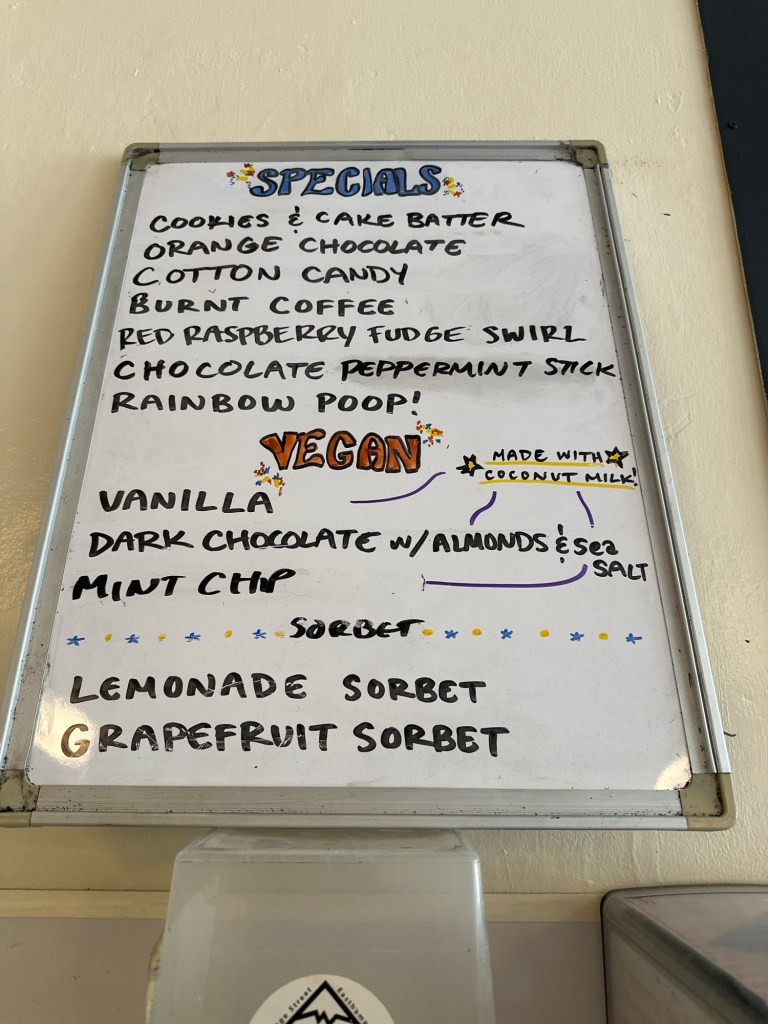 SPECIALS
COOKIES & CAKE BATTER
ORANGE CHOCOLATE
COTTON CANDY
BURNT COFFEE
RED RASPBERRY FUDGE SWIRL
CHOCOLATE PEPPERMINT STICK
RAINBOW POOP!
VEGAN
MADE WITH
COCONUT MILK!
VANILLA
DARK CHOCOLATE W/ALMONDS & Sea
SALT
MINT CHIP
SORBET
LEMONADE SORBET
GRAPEFRUIT SORBET
Street